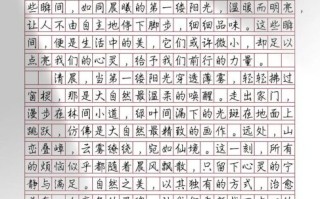 些瞬间，如同晨曦的第一缕阳光，温暖而明亮，
让人不由自主地停下脚步，细细品味。这些瞬
间，便是生活中的美，它们或许微小，却足以
点亮我们的心灵，给予我们前行的力量。
清晨，当第一缕阳光穿透薄雾，轻轻拂过
窗棂，那是大自然最温柔的唤醒。走出家门，
漫步在林间小道，绿叶间漏下的光斑在地面上
跳跃，仿佛是大自然最精致的画作。远处，山
峦叠嶂，云雾缭绕，宛如仙境。这一刻，所有
的烦恼似乎都随着晨风飘散，只留下心灵的宁
静与满足。自然之美，以其独有的方式，治愈